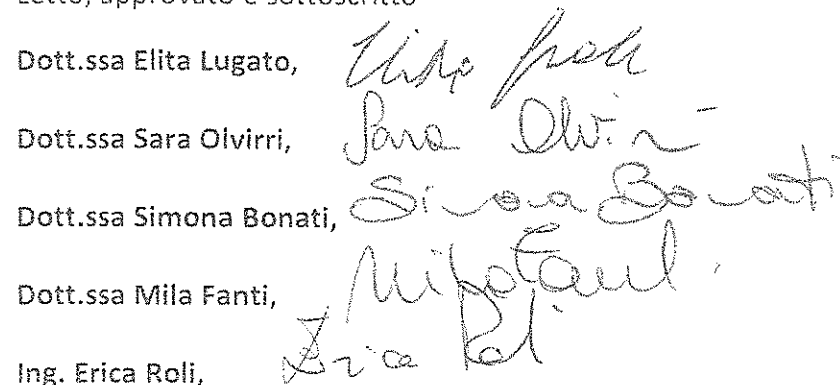 Letto, approvato e sottoscritto
Dott.ssa Elita Lugato,
Dott.ssa Sara Olvirri, Sara Olvirri
Dott.ssa Simona Bonati, Simona Bonati
Dott.ssa Mila Fanti, Mila Fanti
Ing. Erica Roli, Erica Roli